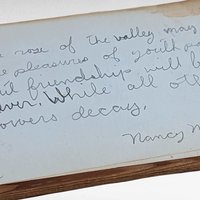 rose of the valley may
pleasures of youth
friendship will
ever. While all
owers decay.
Nancy